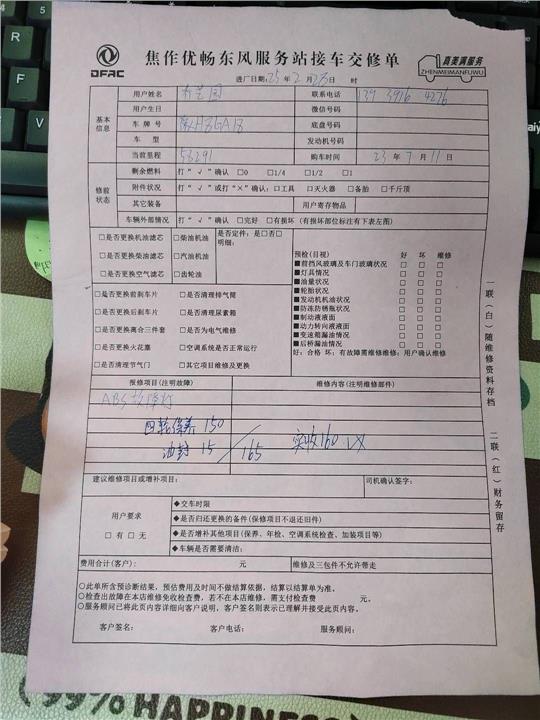 DFAC
焦作优畅东风服务站接车交修单
真美满服务
ZHENMEIMANFUWU
进厂日期:25年2月23日 时
基本信息
用户姓名
联系电话 139 3916 4276
用户生日
微信号码
车牌号
底盘号码
车型
发动机号码
当前里程 53291
购车时间 23年7月11日
修前状态
剩余燃料 打“√”确认 □0 □1/4 □1/2 □1
附件状况 打“√”或打“×”确认:□工具 □灭火器 □备胎 □千斤顶
其它装备
用户寄存物品
车辆外部情况 打“√”确认 □完好 □有损坏(有损坏部位标注有下表左图)
□是否更换机油滤芯 □柴油机油
□是否更换柴油滤芯 □汽油机油
□是否更换空气滤芯 □齿轮油
是否定件:是□否□
明细:
□是否更换前刹车片 □是否清理排气筒
□是否更换后刹车片 □是否清理尿素箱
□是否更换离合三件套 □是否为电气维修
□是否更换火花塞 □空调系统是否正常运行
□是否清理节气门 □其它项目维修及更换
预检(目视) 好 坏 维修
■前挡风玻璃及车门玻璃状况 □ □ □
■灯具情况 □ □ □
■油量状况 □ □ □
■轮胎状况 □ □ □
■发动机机油状况 □ □ □
■防冻防锈瓶状况 □ □ □
■制动液液面 □ □ □
■动力转向液液面 □ □ □
■变速箱漏油情况 □ □ □
■后桥漏油情况 □ □ □
好:合格 坏:有故障需维修维修:用户确认维修
报修项目(注明故障)
维修内容(注明维修部件)
ABS故障灯
四轮保养 150
油封 15 / 165 实收160
建议维修项目或增补项目:
司机确认签字:
用户要求
□有 □无
◆交车时限
◆是否归还更换的备件(保修项目不退还旧件)
◆是否增补其他项目(保养、年检、空调系统检查、加装项目等)
◆车辆是否需要清洁:
费用合计(客户): 元
维修及三包件不允许带走
○此单所含预诊断结果,预估费用及时间不做结算依据,结算以结算单为准。
○检查出故障在本店维修免收检查费,若不在本店维修,需支付检查费 元。
○服务顾问已将此页内容详细向客户说明,客户签名则表示已理解并接受此页内容。
客户签名: 客户电话: 服务顾问:
一联(白)随维修资料存档
二联(红)财务留存
(99% HAPPINESS)